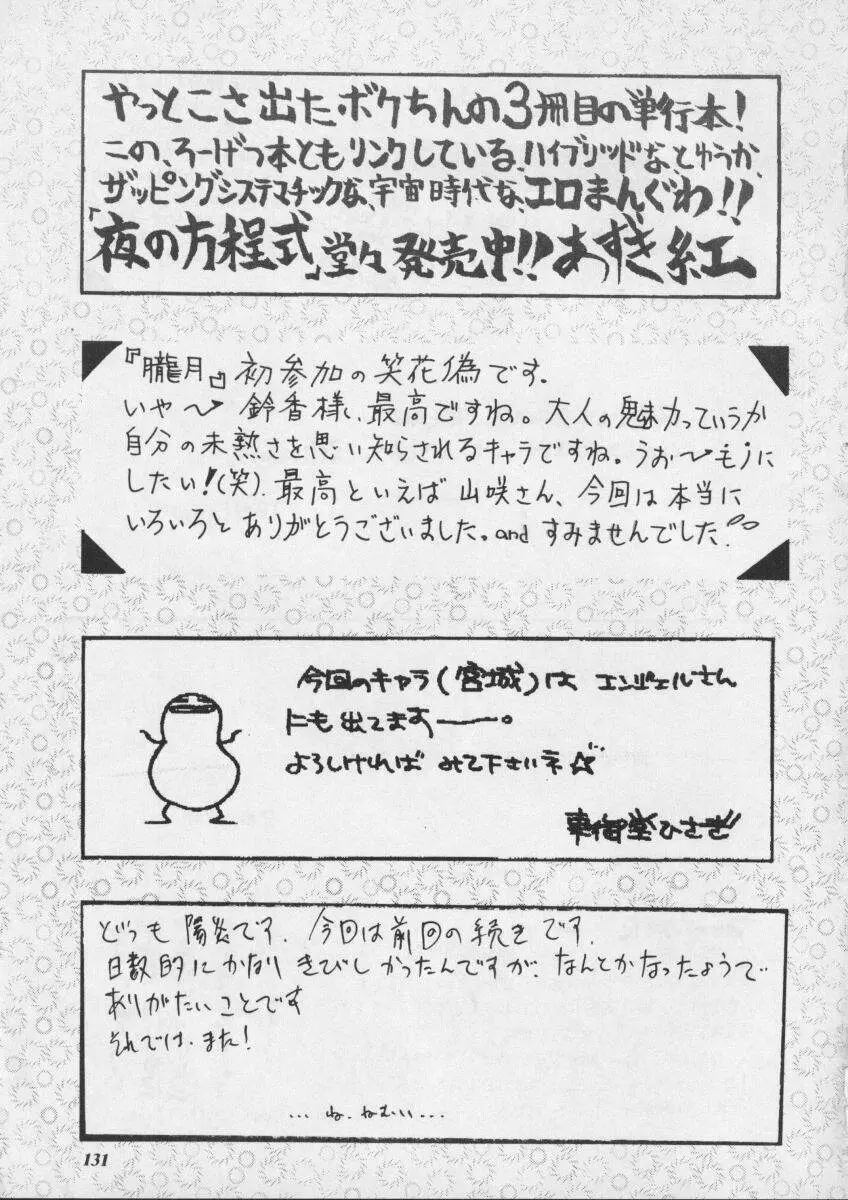 やっとこさ出たボクちんの3冊目の単行本!
この、ろーげつ本ともリンクしている、ハイブリッドな、とゆうか、
ザッピングシステマチックな、宇宙時代な、エロまんぐわ!!
「夜の方程式」堂々発売中!!あずき紅
『朧月』初参加の笑花偽です.
いや〜 鈴香様、最高ですね。大人の魅力っていうか
自分の未熟さを思い知らされるキャラですね。うお〜モノに
したい!(笑). 最高といえば山咲さん、今回は本当に
いろいろとありがとうございました。andすみませんでした!
今回のキャラ(宮城)は エンジェルさん
にも出てます――。
よろしければ みて下さいネ☆
東御堂ひさぎ
どっも 陽炎です. 今回は前回の続きです.
日数的にかなりきびしかったんですが、なんとかなったようで
ありがたいことです
それでは、また!
... ね、ねむい...
131